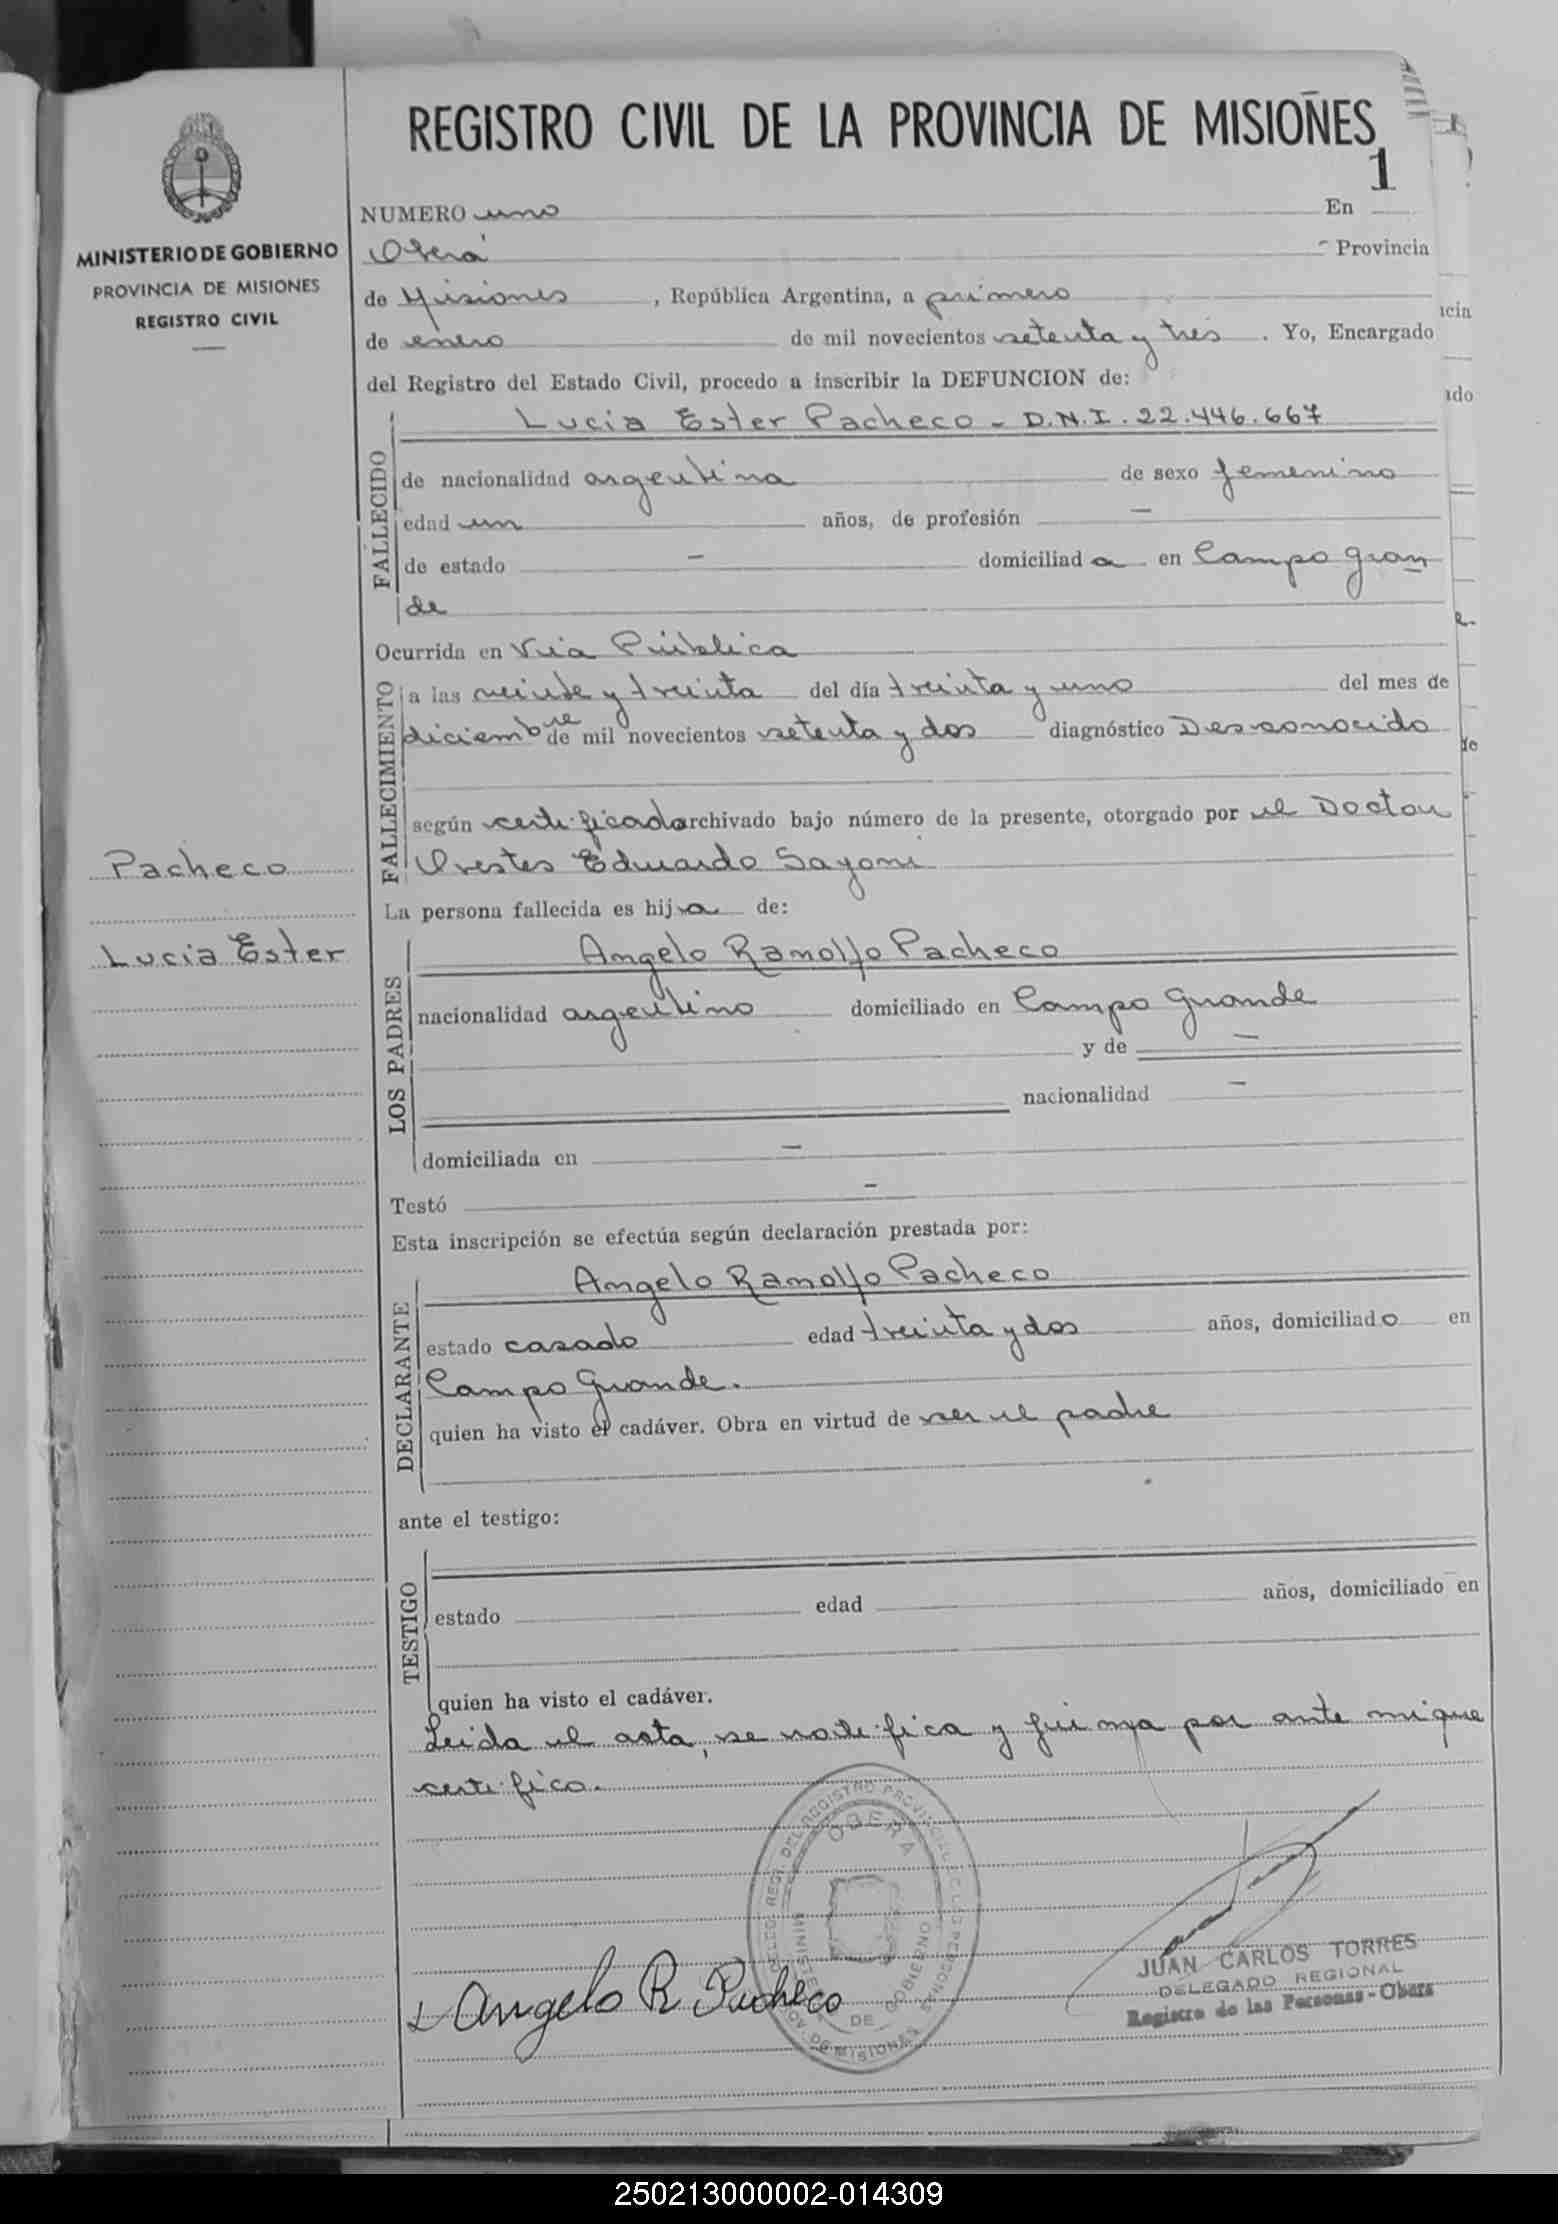 REGISTRO CIVIL DE LA PROVINCIA DE MISIONES
1
MINISTERIO DE GOBIERNO
PROVINCIA DE MISIONES
REGISTRO CIVIL
NUMERO uno En
Oberá Provincia
de Misiones, República Argentina, a primero
de enero de mil novecientos setenta y tres. Yo, Encargado
del Registro del Estado Civil, procedo a inscribir la DEFUNCION de:
FALLECIDO
Lucia Ester Pacheco - D.N.I. 22.446.667
de nacionalidad argentina de sexo femenino
edad un años, de profesión —
de estado — domiciliada en Campo Gran
de
Ocurrida en Via Pública
FALLECIMIENTO
a las veinte y treinta del día treinta y uno del mes de
diciembre de mil novecientos setenta y dos diagnóstico Desconocido
según certificado archivado bajo número de la presente, otorgado por el Doctor
Orestes Eduardo
Pacheco
Lucia Ester
La persona fallecida es hija de:
LOS PADRES
Angelo Ranolfo Pacheco
nacionalidad argentino domiciliado en Campo Grande
y de —
nacionalidad —
domiciliada en —
Testó —
Esta inscripción se efectúa según declaración prestada por:
DECLARANTE
Angelo Ranolfo Pacheco
estado casado edad treinta y dos años, domiciliado en
Campo Grande.
quien ha visto el cadáver. Obra en virtud de ser el padre
ante el testigo:
TESTIGO
estado edad años, domiciliado en
quien ha visto el cadáver.
Leida el acta, se notifica y firma por ante mi que
certifico.
OBERA
MINISTERIO DE GOBIERNO
PROV. DE MISIONES
Angelo R Pacheco
JUAN CARLOS TORRES
DELEGADO REGIONAL
Registro de las Personas - Obera
250213000002-014309